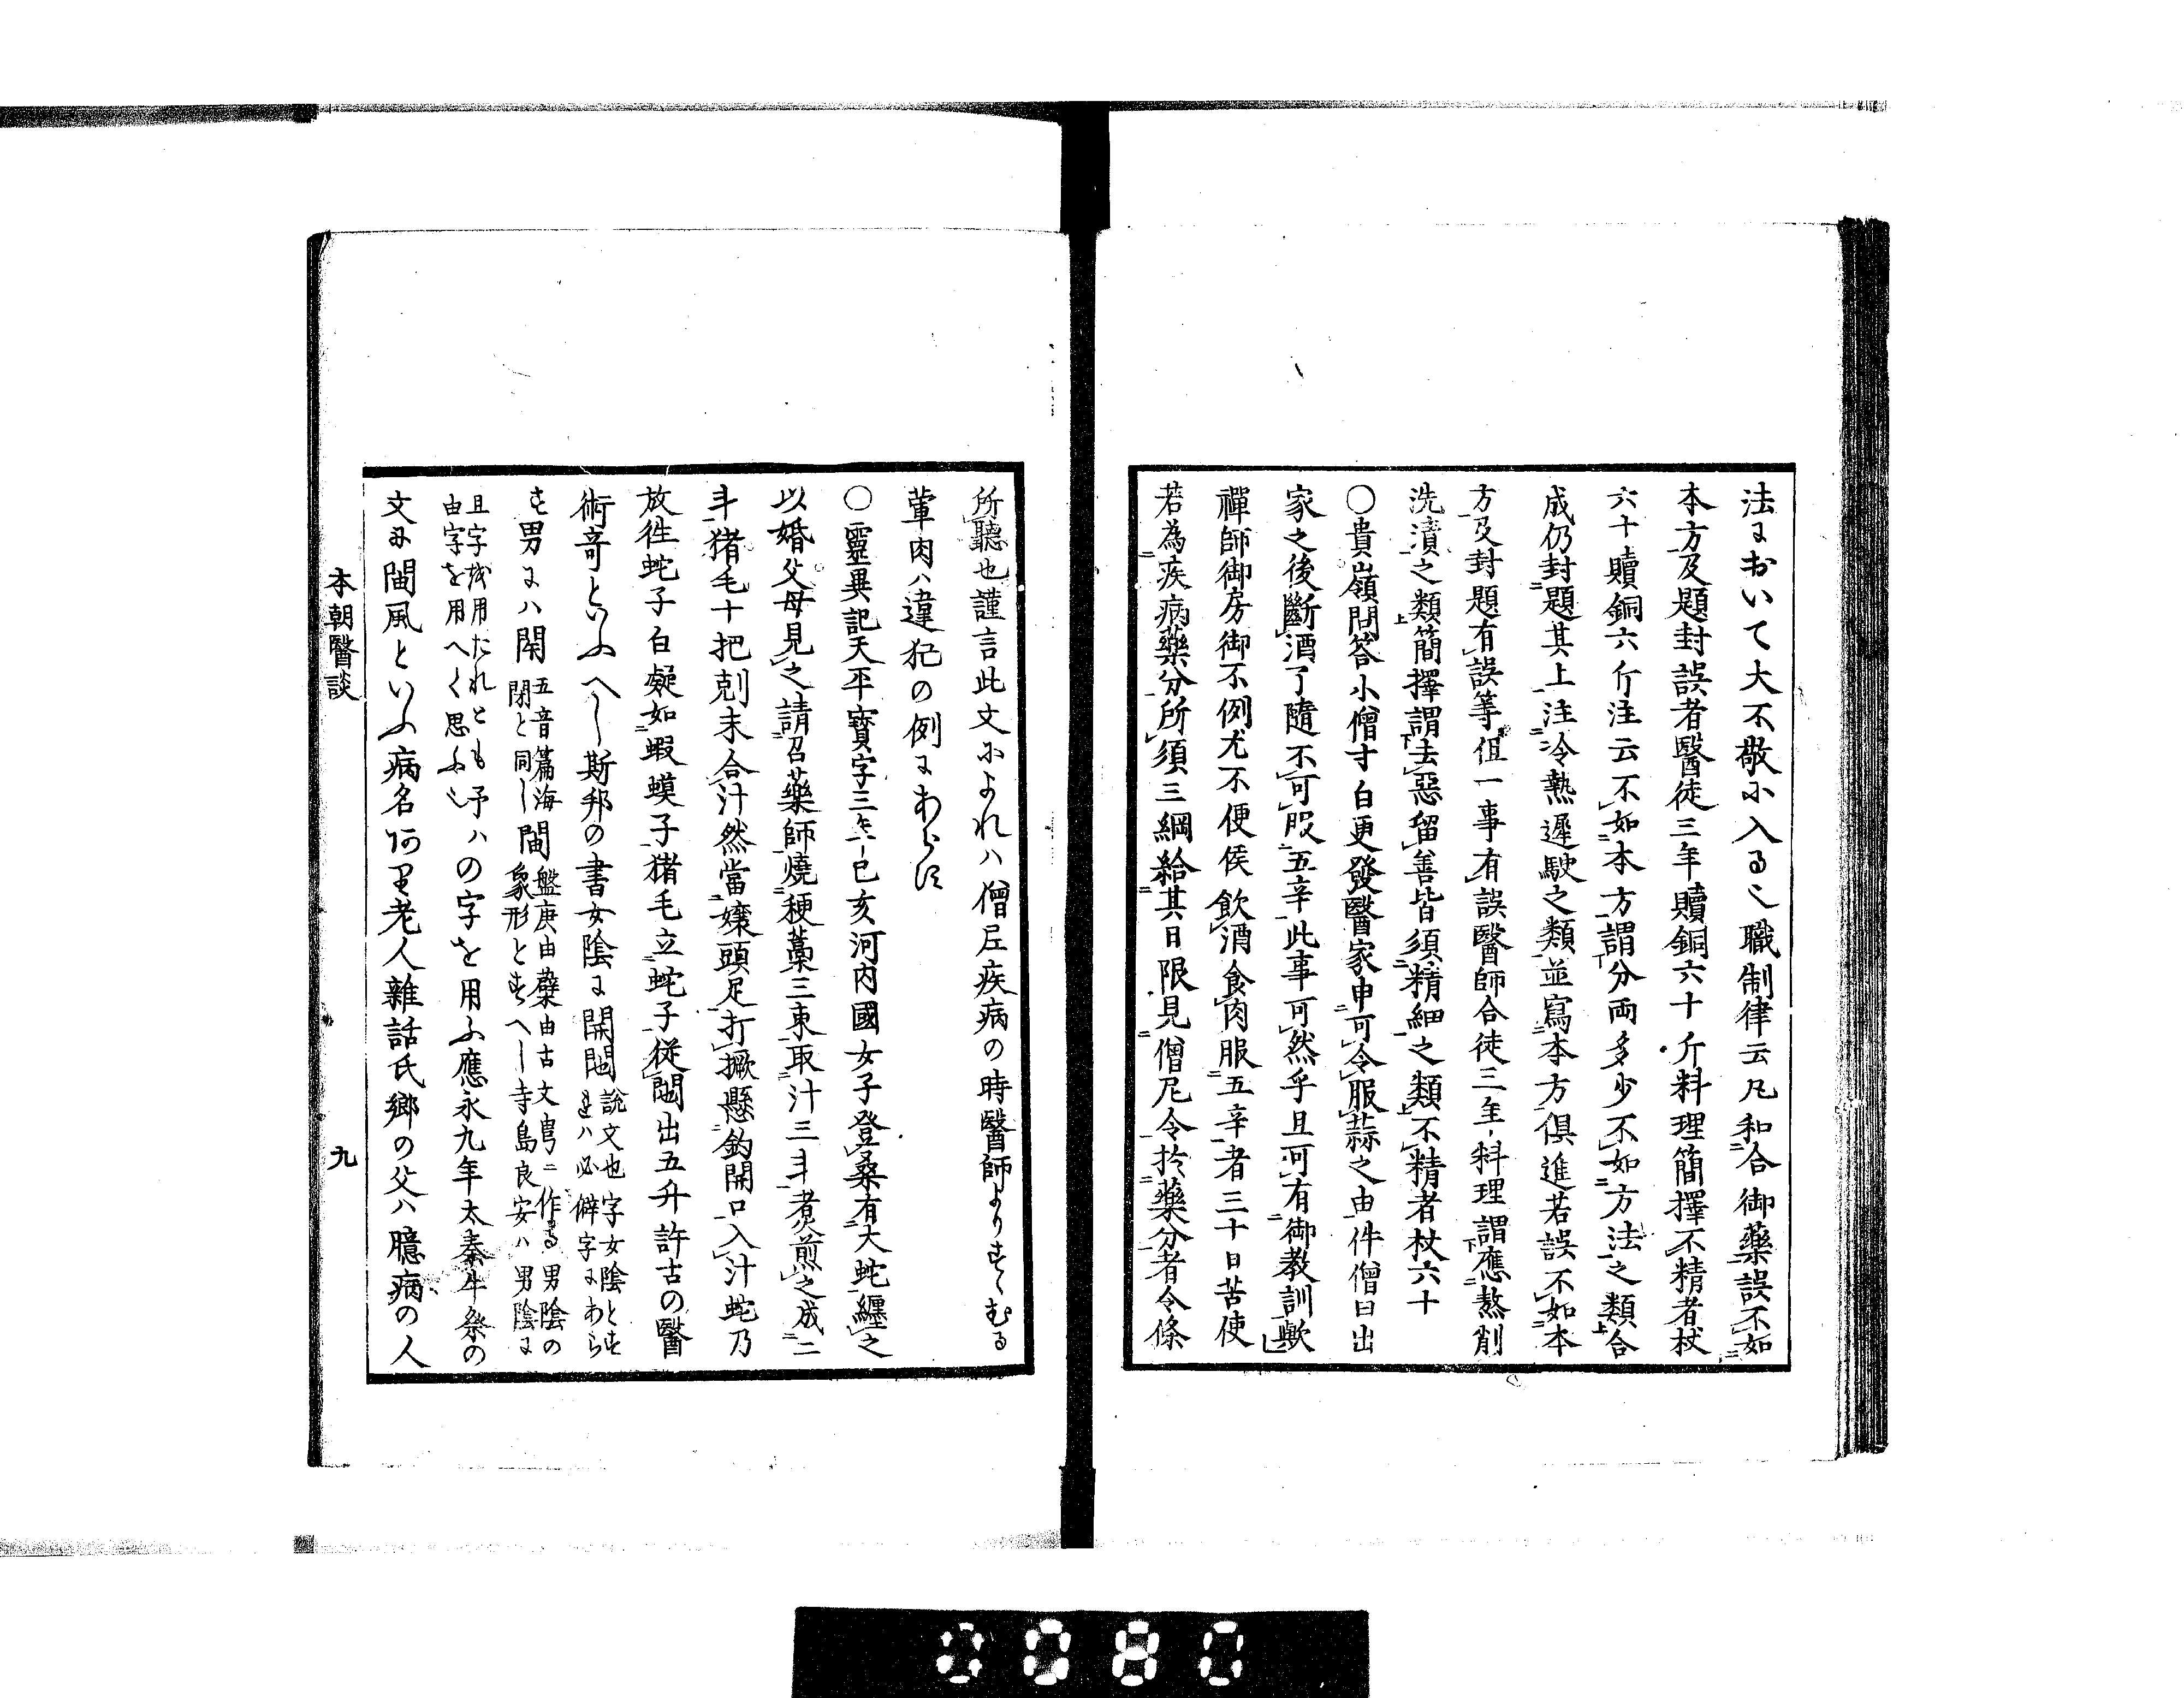 法において大不敬に入る也職制律云凡和合御藥誤不如
本方及題封誤者醫徒三年贖銅六十斤料理簡擇不精者杖
六十贖銅六斤注云不如本方謂分両多少不如方法之類合
成仍封題其上注冷熱遲駛之類並寫本方俱進若誤不如本
方及封題有誤等但一事有誤醫師合徒三年料理謂應熬削
洗漬之類簡擇謂去惡留善皆須精細之類不精者杖六十
〇貴嶺問答小僧寸白更發醫家申可令服蒜之由件僧曰出
家之後斷酒了隨不可服五辛此事可然乎且可有御教訓歟
禪師御房御不例尤不便侯飲酒食肉服五辛者三十日苦使
若為疾病藥分所須三綱給其日限見僧尼令扵藥分者令條
所聽也謹言此文によれハ僧尼疾病の時醫師よりすゝむる
葷肉ハ違犯の例にあらす
〇靈異記天平寶字三年己亥河内國女子登桑有大蛇纒之
以婚父母見之請召藥師燒稷藁三束取汁三斗煮煎之成二
斗猪毛十把剋末合汁然當嬢頭足打撅懸鈎開口入汁蛇乃
放徃蛇子白凝如蝦蟆子猪毛立蛇子從閫出五升許古の醫
術竒といふへし斯邦の書女陰に開
說文也字女陰とす
ハ必僻字にあら
す男にハ閇
五音篇海
閉と同し
閫
盤庚由蘖由古文甹ニ作る男陰の
象形とすへし寺島良安ハ男陰に
且字を用たれとも予ハ
由字を用へく思ふ也
の字を用ふ應永九年太秦牛祭の
文に閫風といふ病名阿り老人雜話氏鄉の父ハ臆病の人
本朝醫談
九
0080